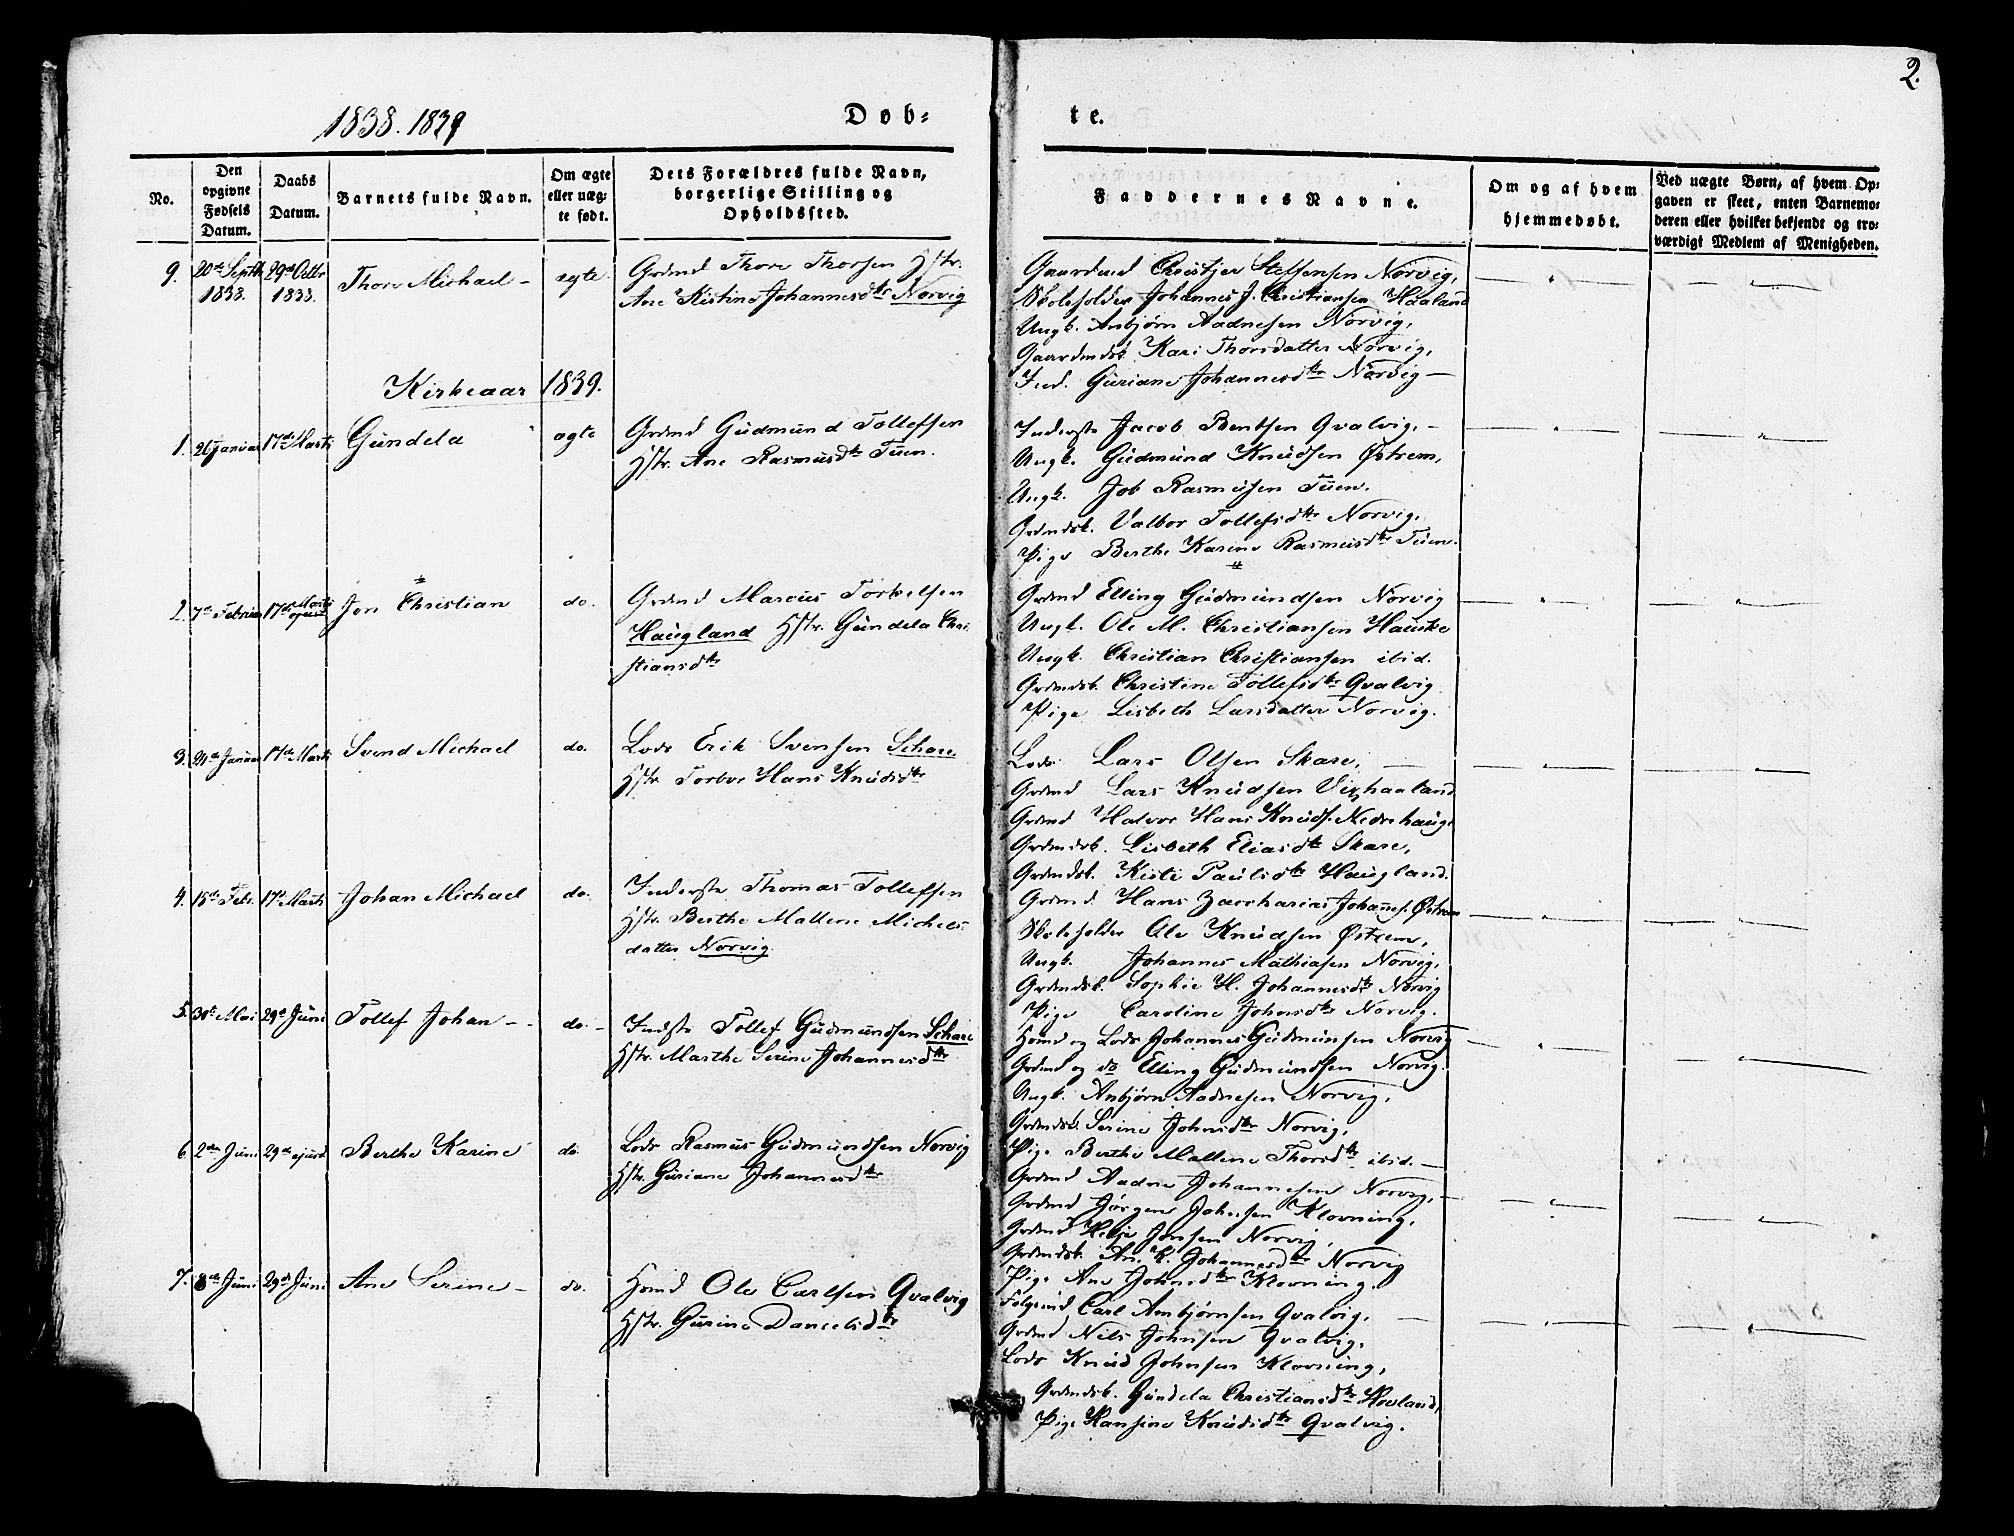 2.
1838. 1839
Døb-
te.
No.
Den opgivne Fødsels Datum.
Daabs Datum.
Barnets fulde Navn.
Om ægte eller uæg-te født.
Dets Forældres fulde Navn, borgerlige Stilling og Opholdssted.
Faddernes Navne.
Om og af hvem hjemmedøbt.
Ved uægte Børn, af hvem Op-gaven er skeet, enten Barnemo-deren eller hvilket bekjendt og tro-værdigt Medlem af Menigheden.
9. 20de Septbr 1838. 29de Octbr 1838. Thore Michael - ægte
Grdmd Thore Thorsen Hstr.
Ane Kistine Johannesdtr Norvig
Gaardmd Christjer Steffensen Norvig,
Skoleholder Johannes J. Christiansen Haaland
Ungk. Anbjørn Aadnesen Norvig,
Gaardmdsk. Kari Thorsdatter Norvig,
Ind. Guriane Johannesdtr Norvig
Kirkeaar 1839.
1. 26 Januar 17de Marts Gundela ægte
Grdmd Gudmund Tollefsen
Hstr. Ane Rasmusdtr Tuen.
Inderste Jacob Bentsen Qvalvig,
Ungk. Gudmund Knudsen Østrem,
Ungk. Job Rasmusen Tuen.
Grdmdsk. Valbor Tollefsdtr Norvig,
Pige Berthe Karine Rasmusdtr Tuen.
2. 7de Februar 17de Marts ejusd Jon Christian do.
Grdmd Marcus Torkelsen
Haugland Hstr. Gundela Chri-
stiansdtr
Grdmd Elling Gudmundsen Norvig
Ungk. Ole M. Christiansen Hauske
Ungk. Christian Christiansen ibid.
Grdmdsk. Christine Tollefsdtr Qvalvig
Pige Lisbeth Larsdatter Norvig.
3. 24de Januar 17de Marts Svend Michael do.
Lods Erik Svensen Schare
Hstr Torbor Hans Knudsdtr
Lods Lars Olsen Skare,
Grdmd Lars Knudsen Vixhaaland
Grdmd Halvor Hans Knuds. Nedrehauge
Grdmdsk. Lisbeth Eliasdtr Skare,
Grdmdsk. Kisti Paulsdtr Haugland.
4. 15de Febr. 17de Marts Johan Michael do.
Inderste Thomas Tollefsen
Hstr. Berthe Mallene Michels-
datter Norvig.
Grdmd Hans Zaccharias Johannes. Østrem
Skoleholder Ole Knudsen Østrem,
Ungk. Johannes Mathiasen Norvig,
Grdmdsk. Sophie H. Johannesdtr Norvig
Pige Caroline Johnsdtr Norvig.
5. 30de Mai 29de Juni Tollef Johan - - do. -
Indste Tollef Gudmundsen Schare
Hstr. Marthe Serine Johannesdtr
Hsmd og Lods Johannes Gudmunsen Norvig
Grdmd og do Elling Gudmundsen Norvig.
Ungk. Anbjørn Aadnesen Norvig,
Grdmdsk. Serine Johnsdtr Norvig,
Pige Berthe Mallene Thorsdtr ibid.
6. 2den Juni 29de ejusd Berthe Karine do.
Lods Rasmus Gudmundsen Norvig
Hstr. Guriane Johannesdtr
Grdmd Aadne Johannesen Norvig,
Grdmd Jørgen Johnsen Klovning,
Grdmd Helje Jonsen Norvig,
Grdmdsk. Ane K. Johannesdtr Norvig
Pige Ane Johnsdtr Klovning.
7. 8de Juni 29de Juni Ane Serine - do.
Hsmd Ole Carlsen Qvalvig
Hstr. Gurine Danielsdtr
Følgemd Carl Anbjørnsen Qvalvig,
Grdmd Nils Johnsen Qvalvig,
Lods Knud Johnsen Klovning,
Grdmdsk. Gundela Christiansdtr Hovland,
Pige Hansine Knudsdtr Qvalvig.